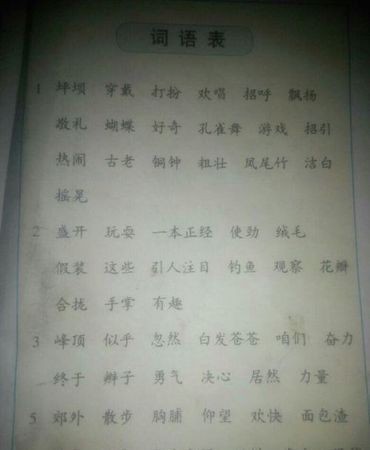 词语表
1 坪坝 穿戴 打扮 欢唱 招呼 飘扬
敬礼 蝴蝶 好奇 孔雀舞 游戏 招引
热闹 古老 铜钟 粗壮 凤尾竹 洁白
摇晃
2 盛开 玩耍 一本正经 使劲 绒毛
假装 这些 引人注目 钓鱼 观察 花瓣
合拢 手掌 有趣
3 峰顶 似乎 忽然 白发苍苍 咱们 奋力
终于 辫子 勇气 决心 居然 力量
5 郊外 散步 胸脯 仰望 欢快 面包渣